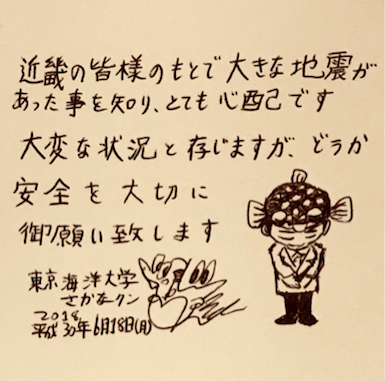 近畿の皆様のもとで大きな地震が
あった事を知り、とても心配です
大変な状況と存じますが、どうか
安全を大切に
御願い致します
東京海洋大学
さかなクン
2018
平成30年6月18日(月)